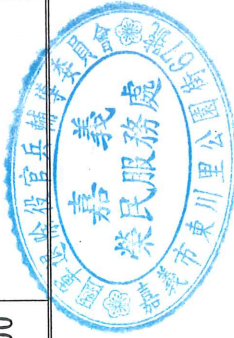 國軍退除役官兵輔導委員會
嘉義
榮民服務處
嘉義市東川里公園街67號
00